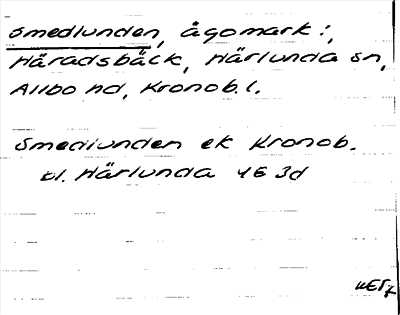 Smedlunden, ägomark:,
Häradsbäck, Härlunda sn,
Allbo hd, Kronob. l.
Smedlunden ek Kronob.
bl. Härlunda 4E 3d